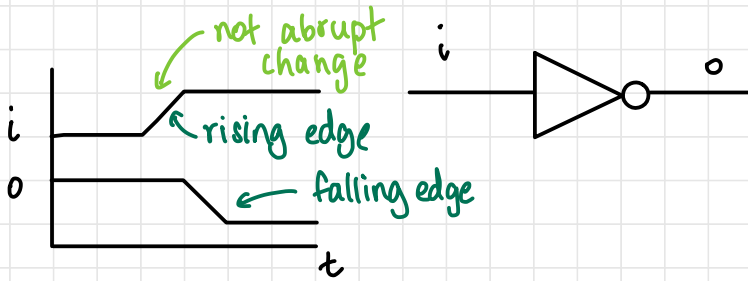 not abrupt
change
i
o
i
rising edge
o
falling edge
t